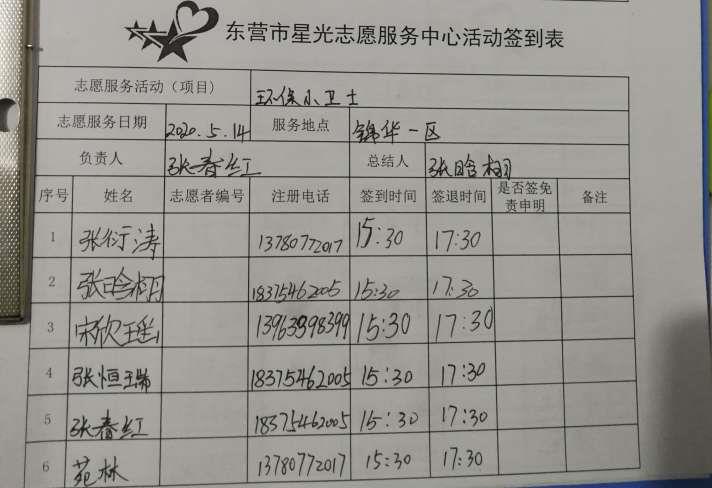 东营市星光志愿服务中心活动签到表
志愿服务活动（项目） 环保小卫士
志愿服务日期 2020.5.14 服务地点 锦华一区
负责人 张春红 总结人 张晗栩
序号 姓名 志愿者编号 注册电话 签到时间 签退时间 是否签免责申明 备注
1 张衍涛 13780772017 15:30 17:30
2 张晗栩 18375462005 15:30 17:30
3 宋欣瑶 13963998399 15:30 17:30
4 张恒瑞 18375462005 15:30 17:30
5 张春红 18375462005 15:30 17:30
6 苑林 13780772017 15:30 17:30